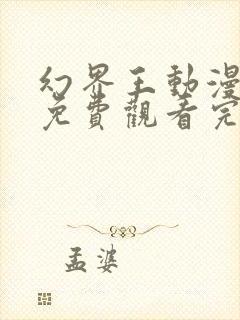 幻界王動漫
免費觀看完
孟婆